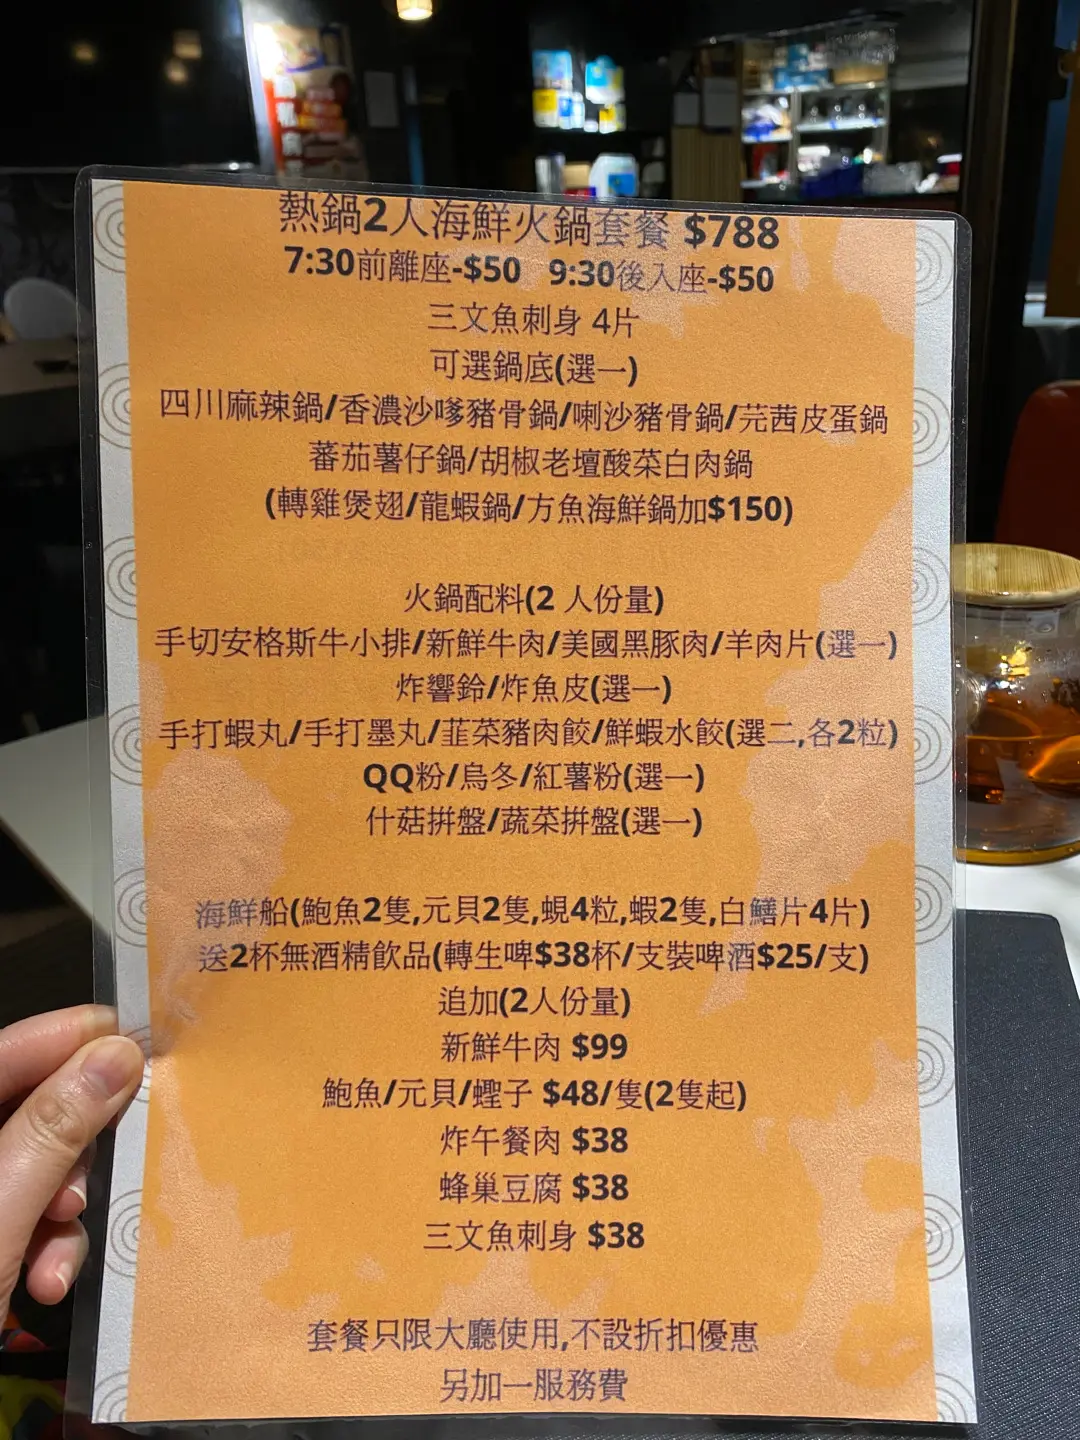 熱鍋2人海鮮火鍋套餐 $788
7:30前離座-$50 9:30後入座-$50
三文魚刺身 4片
可選鍋底(選一)
四川麻辣鍋/香濃沙嗲豬骨鍋/喇沙豬骨鍋/芫茜皮蛋鍋
蕃茄薯仔鍋/胡椒老壇酸菜白肉鍋
(轉雞煲翅/龍蝦鍋/方魚海鮮鍋加$150)
火鍋配料(2 人份量)
手切安格斯牛小排/新鮮牛肉/美國黑豚肉/羊肉片(選一)
炸響鈴/炸魚皮(選一)
手打蝦丸/手打墨丸/韮菜豬肉餃/鮮蝦水餃(選二,各2粒)
QQ粉/烏冬/紅薯粉(選一)
什菇拼盤/蔬菜拼盤(選一)
海鮮船(鮑魚2隻,元貝2隻,蜆4粒,蝦2隻,白鱔片4片)
送2杯無酒精飲品(轉生啤$38杯/支裝啤酒$25/支)
追加(2人份量)
新鮮牛肉 $99
鮑魚/元貝/蟶子 $48/隻(2隻起)
炸午餐肉 $38
蜂巢豆腐 $38
三文魚刺身 $38
套餐只限大廳使用,不設折扣優惠
另加一服務費